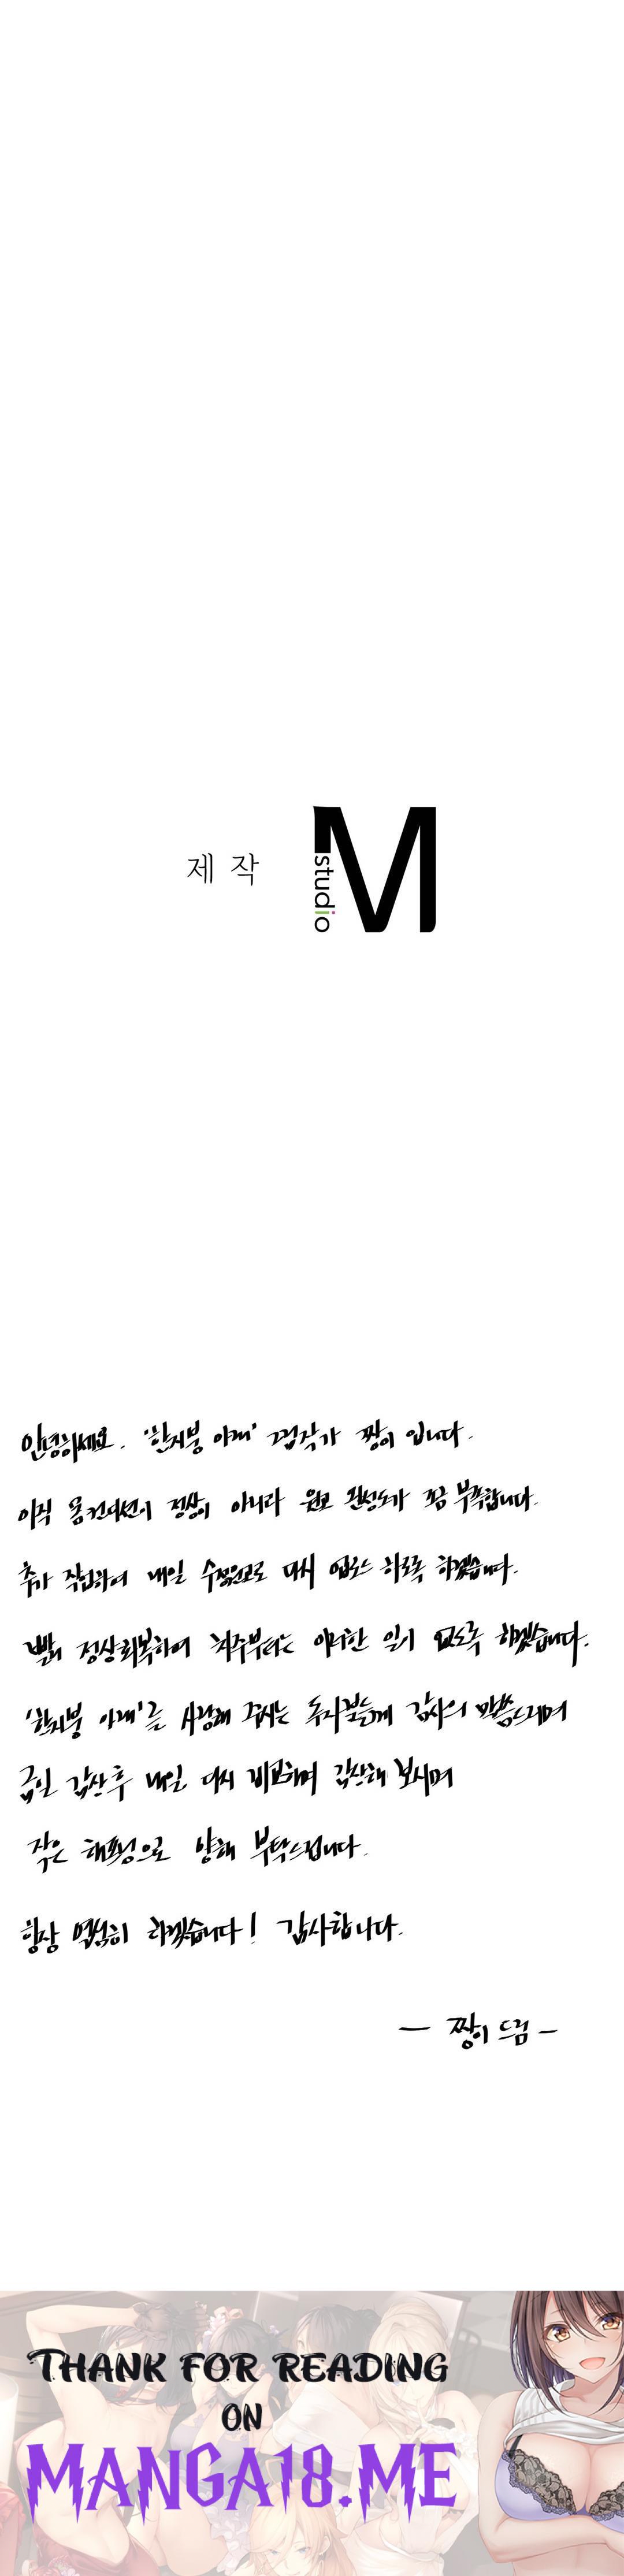 제 작
M
studio
안녕하세요. '한지붕 아래' 그림작가 짱이 입니다.
아직 몸 컨디션이 정상이 아니라 원고 완성도가 조금 부족합니다.
추가 작업하여 내일 수정원고로 다시 업로드 하도록 하겠습니다.
빨리 정상회복하여 차주부터는 이러한 일이 없도록 하겠습니다.
'한지붕 아래'를 사랑해 주시는 독자분들께 감사의 말씀드리며
금일 감상 후 내일 다시 비교하며 감상해 보시며
작은 해프닝으로 양해 부탁드립니다.
항상 열심히 하겠습니다! 감사합니다.
— 짱이 드림 —
THANK FOR READING
ON
MANGA18.ME